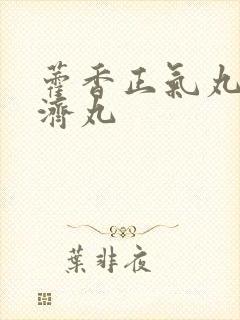 藿香正氣丸
濟丸
葉非夜